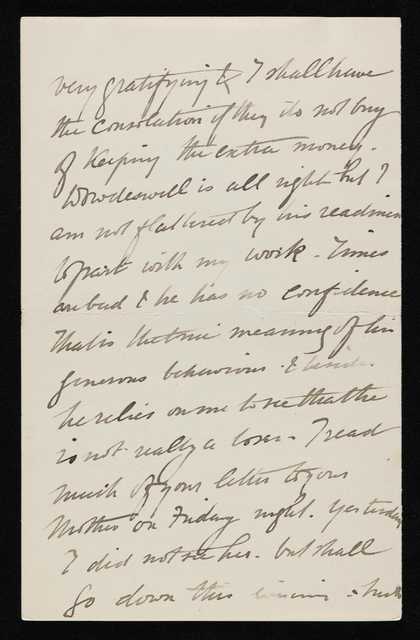 very gratifying & I shall have
the consolation if they do not buy
of Keeping the extra money.
Dowdeswell is all right but I
am not flattered by his readiness
to part with my work - Times
are bad & he has no confidence
That is the true meaning of his
generous behaviour - & beside
he relies on me to see that he
is not really a loser - I read
much of your letter to your
Mother on Friday night. yesterday
I did not see her. but shall
go down this